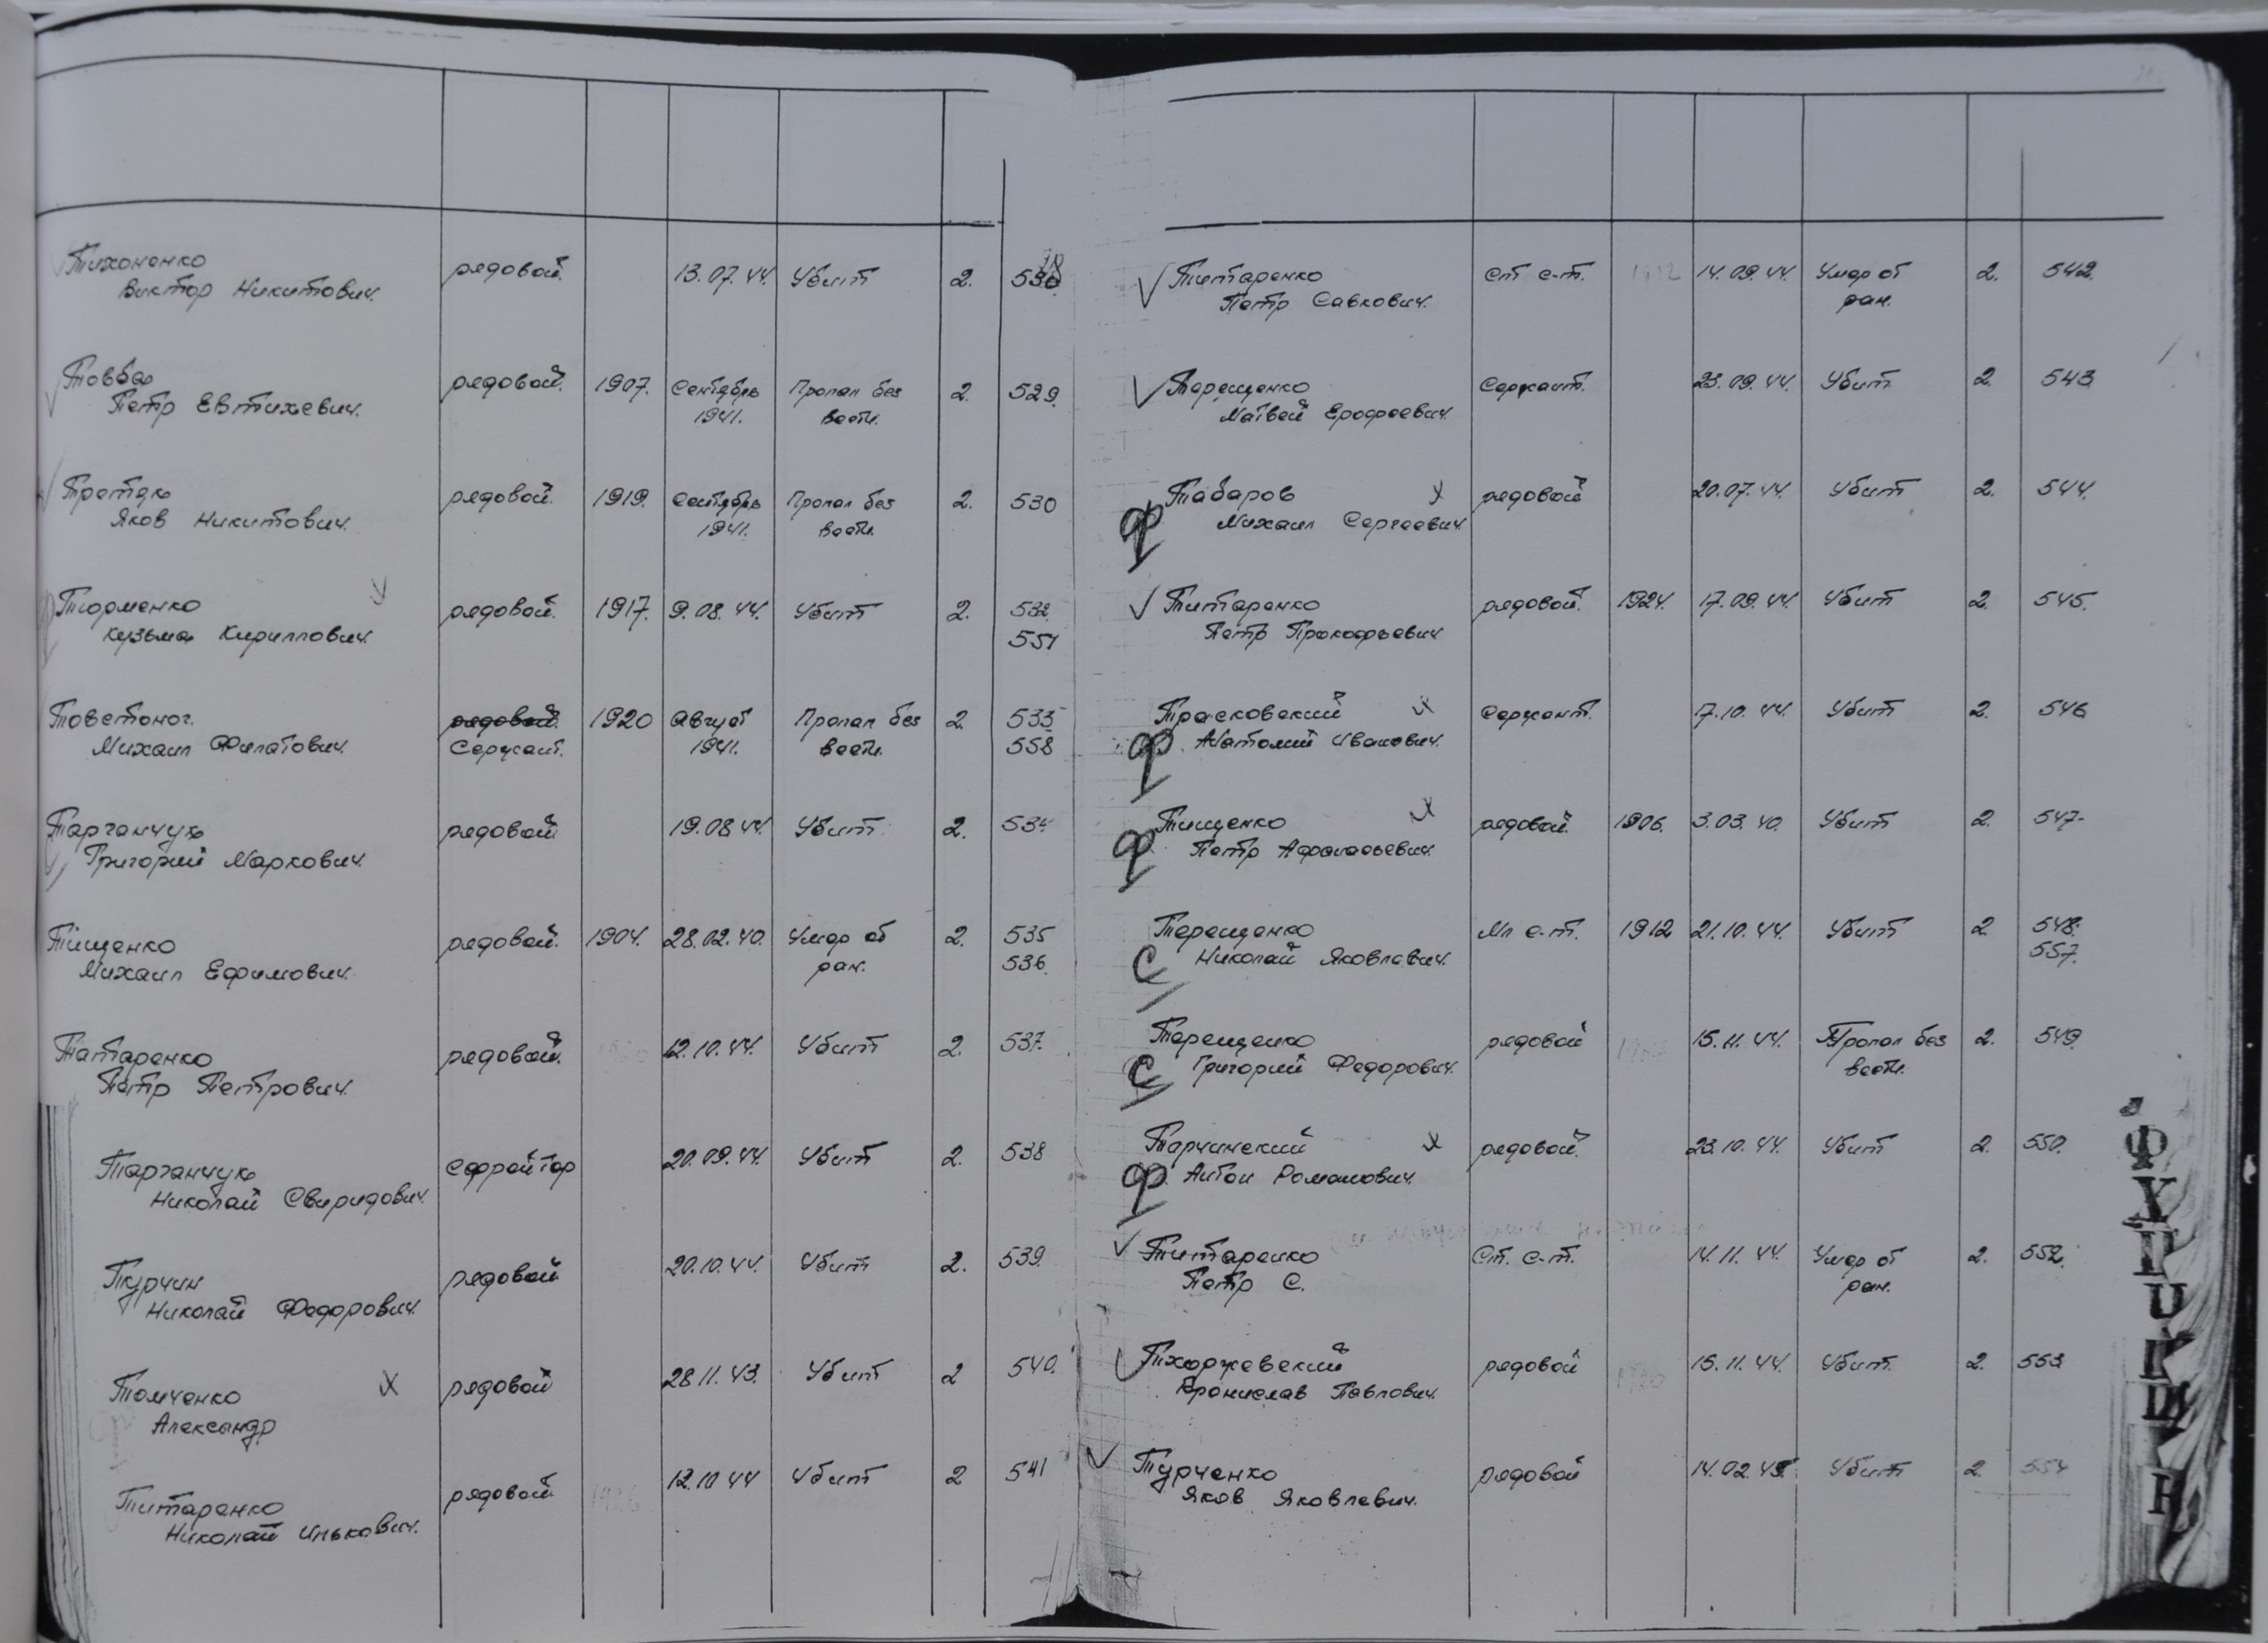 Тихоненко рядовой. 13.07.44. Убит 2. 530 28
Виктор Никитович.
Товба рядовой. 1907. Сентябрь Пропал без 2. 529.
Петр Евтихевич. 1941. вести.
Третяк рядовой. 1919. Сентябрь Пропал без 2. 530
Яков Никитович. 1941. вести.
Тюрменко рядовой. 1917. 9.08.44. Убит 2. 532.
Кузьма Кириллович. 551
Товстоног. рядовой. 1920 Август Пропал без 2. 533
Михаил Филатович. Сержант. 1941. вести. 558
Тарганчук рядовой 19.08.44. Убит 2. 534.
Григорий Маркович.
Тищенко рядовой. 1904. 28.02.40. Умер от 2. 535
Михаил Ефимович. ран. 536.
Татаренко рядовой. 12.10.44. Убит 2. 537.
Петр Петрович.
Тарганчук Ефрейтор 20.09.44. Убит 2. 538
Николай Свиридович.
Турчин рядовой 20.10.44. Убит 2. 539.
Николай Федорович.
Томченко х рядовой 28.11.43. Убит 2 540.
Александр
Титаренко рядовой 12.10 44 Убит 2 541
Николай Инькович.
Титаренко Ст с-т. 1912 14.09.44. Умер от 2. 542.
Петр Савкович. ран.
Терещенко Сержант. 23.09.44. Убит 2. 543
Матвей Ерофеевич.
Табаров х рядовой 20.07.44. Убит 2. 544.
ф Михаил Сергеевич.
Титаренко рядовой. 1924. 17.09.44. Убит 2. 545.
Петр Прокофьевич
Трасковский х Сержант. 17.10.44. Убит 2. 546
ф Анатолий Иванович.
Тищенко х рядовой. 1906. 3.03.40. Убит 2. 547.
ф Петр Афанасьевич.
Терещенко Мл с-т. 1912 21.10.44. Убит 2 548.
С Николай Яковлевич. 557.
Терещенко рядовой 15.11.44. Пропал без 2. 549.
С Григорий Федорович. вести.
Тарчинский х рядовой. 23.10.44. Убит 2. 550.
ф Антон Романович.
Титаренко Ст. с-т. 14.11.44. Умер от 2. 552.
Петр С. ран.
Тхоржевский рядовой 15.11.44. Убит 2. 553
Бронислав Павлович.
Турченко рядовой 14.02.45. Убит 2. 554
Яков Яковлевич.
Ф
Х
Ц
Щ